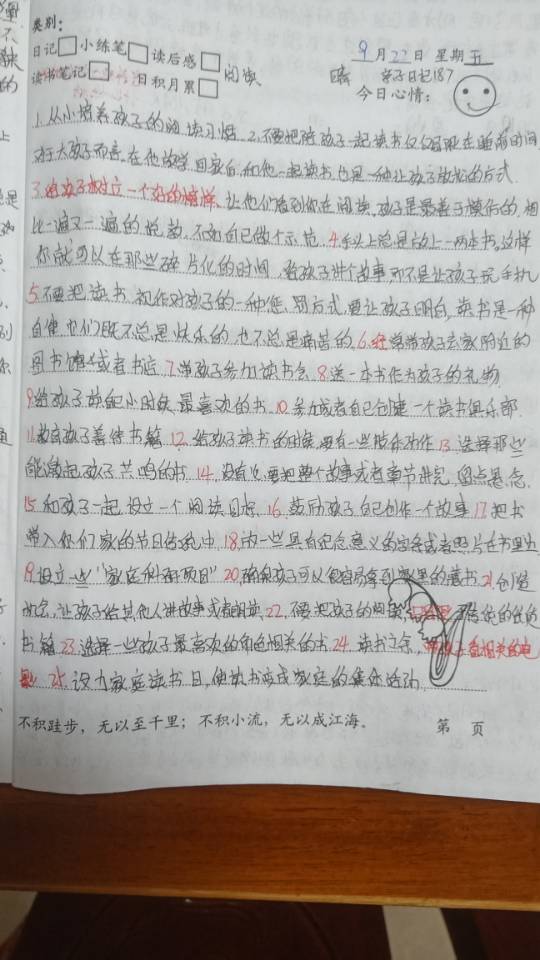 类别：
日记 小练笔 读后感 阅读
读书笔记 日积月累
9月22日 星期五
晴 亲子日记187
今日心情：
1.从小培养孩子的阅读习惯. 2.不要把陪孩子一起读书仅仅局限在睡前时间
对于大孩子而言,在他放学回家后,和他一起读书也是一种让孩子放松的方式.
3.给孩子树立一个好的榜样,让他们看到你在阅读,孩子是最善于模仿的,相
比一遍又一遍的说教,不如自己做个示范. 4.手头上总是放上一两本书,这样
你就可以在那些碎片化的时间,给孩子讲个故事,而不是让孩子玩手机
5.不要把读书视作对孩子的一种惩罚方式,要让孩子明白,读书是一种
自律,它们既不总是快乐的,也不总是痛苦的. 6.经常带孩子去家附近的
图书馆或者书店 7.带孩子参加读书会 8.送一本书作为孩子的礼物
9.给孩子读自己小时候最喜欢的书. 10.参加或者自己创建一个读书俱乐部
11.教育孩子善待书籍 12.给孩子读书的时候,要有一些肢体动作 13.选择那些
能激起孩子共鸣的书 14.没有必要把整个故事或者章节讲完,留点悬念.
15.和孩子一起设立一个阅读目标. 16.鼓励孩子自己创作一个故事 17.把书
带入你们家的节日传统中 18.放一些具有纪念意义的字条或者照片在书里边
19.设立一些"家庭科研项目" 20.确保孩子可以很容易拿到家里的藏书 21.创造
机会,让孩子给其他人讲故事或者朗读. 22.不要把孩子的阅读 传统的纸质
书籍 23.选择一些孩子最喜欢的角色相关的书 24.读书之余, 看相关的电
影 25.设立家庭读书日,使读书变成家庭的集体活动.
不积跬步，无以至千里；不积小流，无以成江海。 第 页